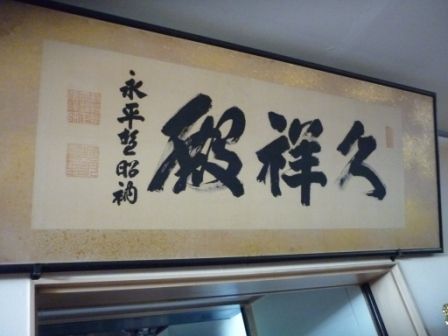 久祥殿
永平哲昭衲